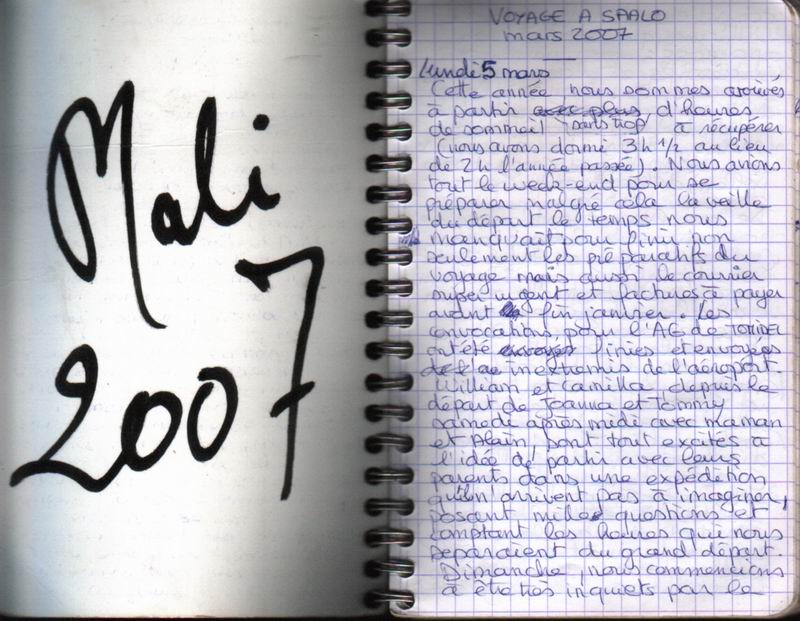 Mali
2007
VOYAGE A SAALO
mars 2007
lundi 5 mars
Cette année nous sommes arrivés
à partir avec plus d'heures
de sommeil sans trop à récupérer
(nous avons dormi 3h 1/2 au lieu
de 2h l'année passée). Nous avions
tout le week-end pour se
préparer malgré cela la veille
du départ le temps nous
manquait pour finir non
seulement les préparatifs du
voyage mais aussi le courrier
super urgent et factures à payer
avant fin janvier. Les
convocations pour l'AG de
ont été envoyés finies et envoyées
in extremis de l'aéroport.
William et Camilla depuis le
départ de Joanna et Tommy
samedi après midi avec maman
et Alain, sont tout excités à
l'idée de partir avec leurs
parents dans une expédition
qu'ils n'arrivent pas à imaginer,
posant milles questions et
comptant les heures qui nous
séparaient du grand départ.
Dimanche, nous commencions
à être très inquiets par le